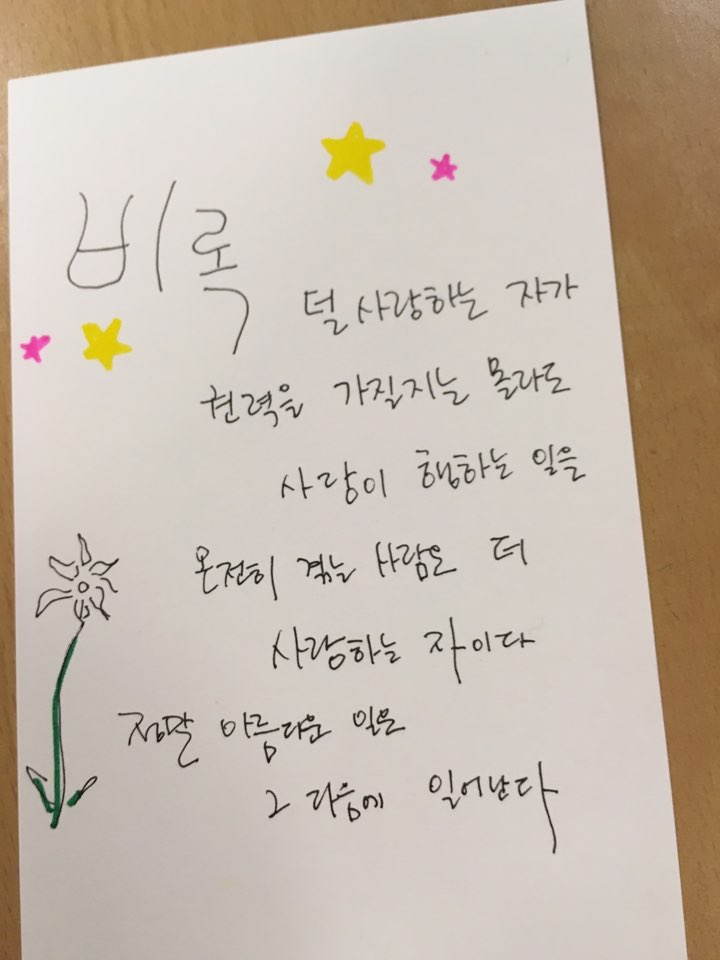 비록
덜 사랑하는 자가
권력을 가질지는 몰라도
사랑이 행하는 일을
온전히 겪는 사람은 더
사랑하는 자이다
정말 아름다운 일은
그 다음에 일어난다